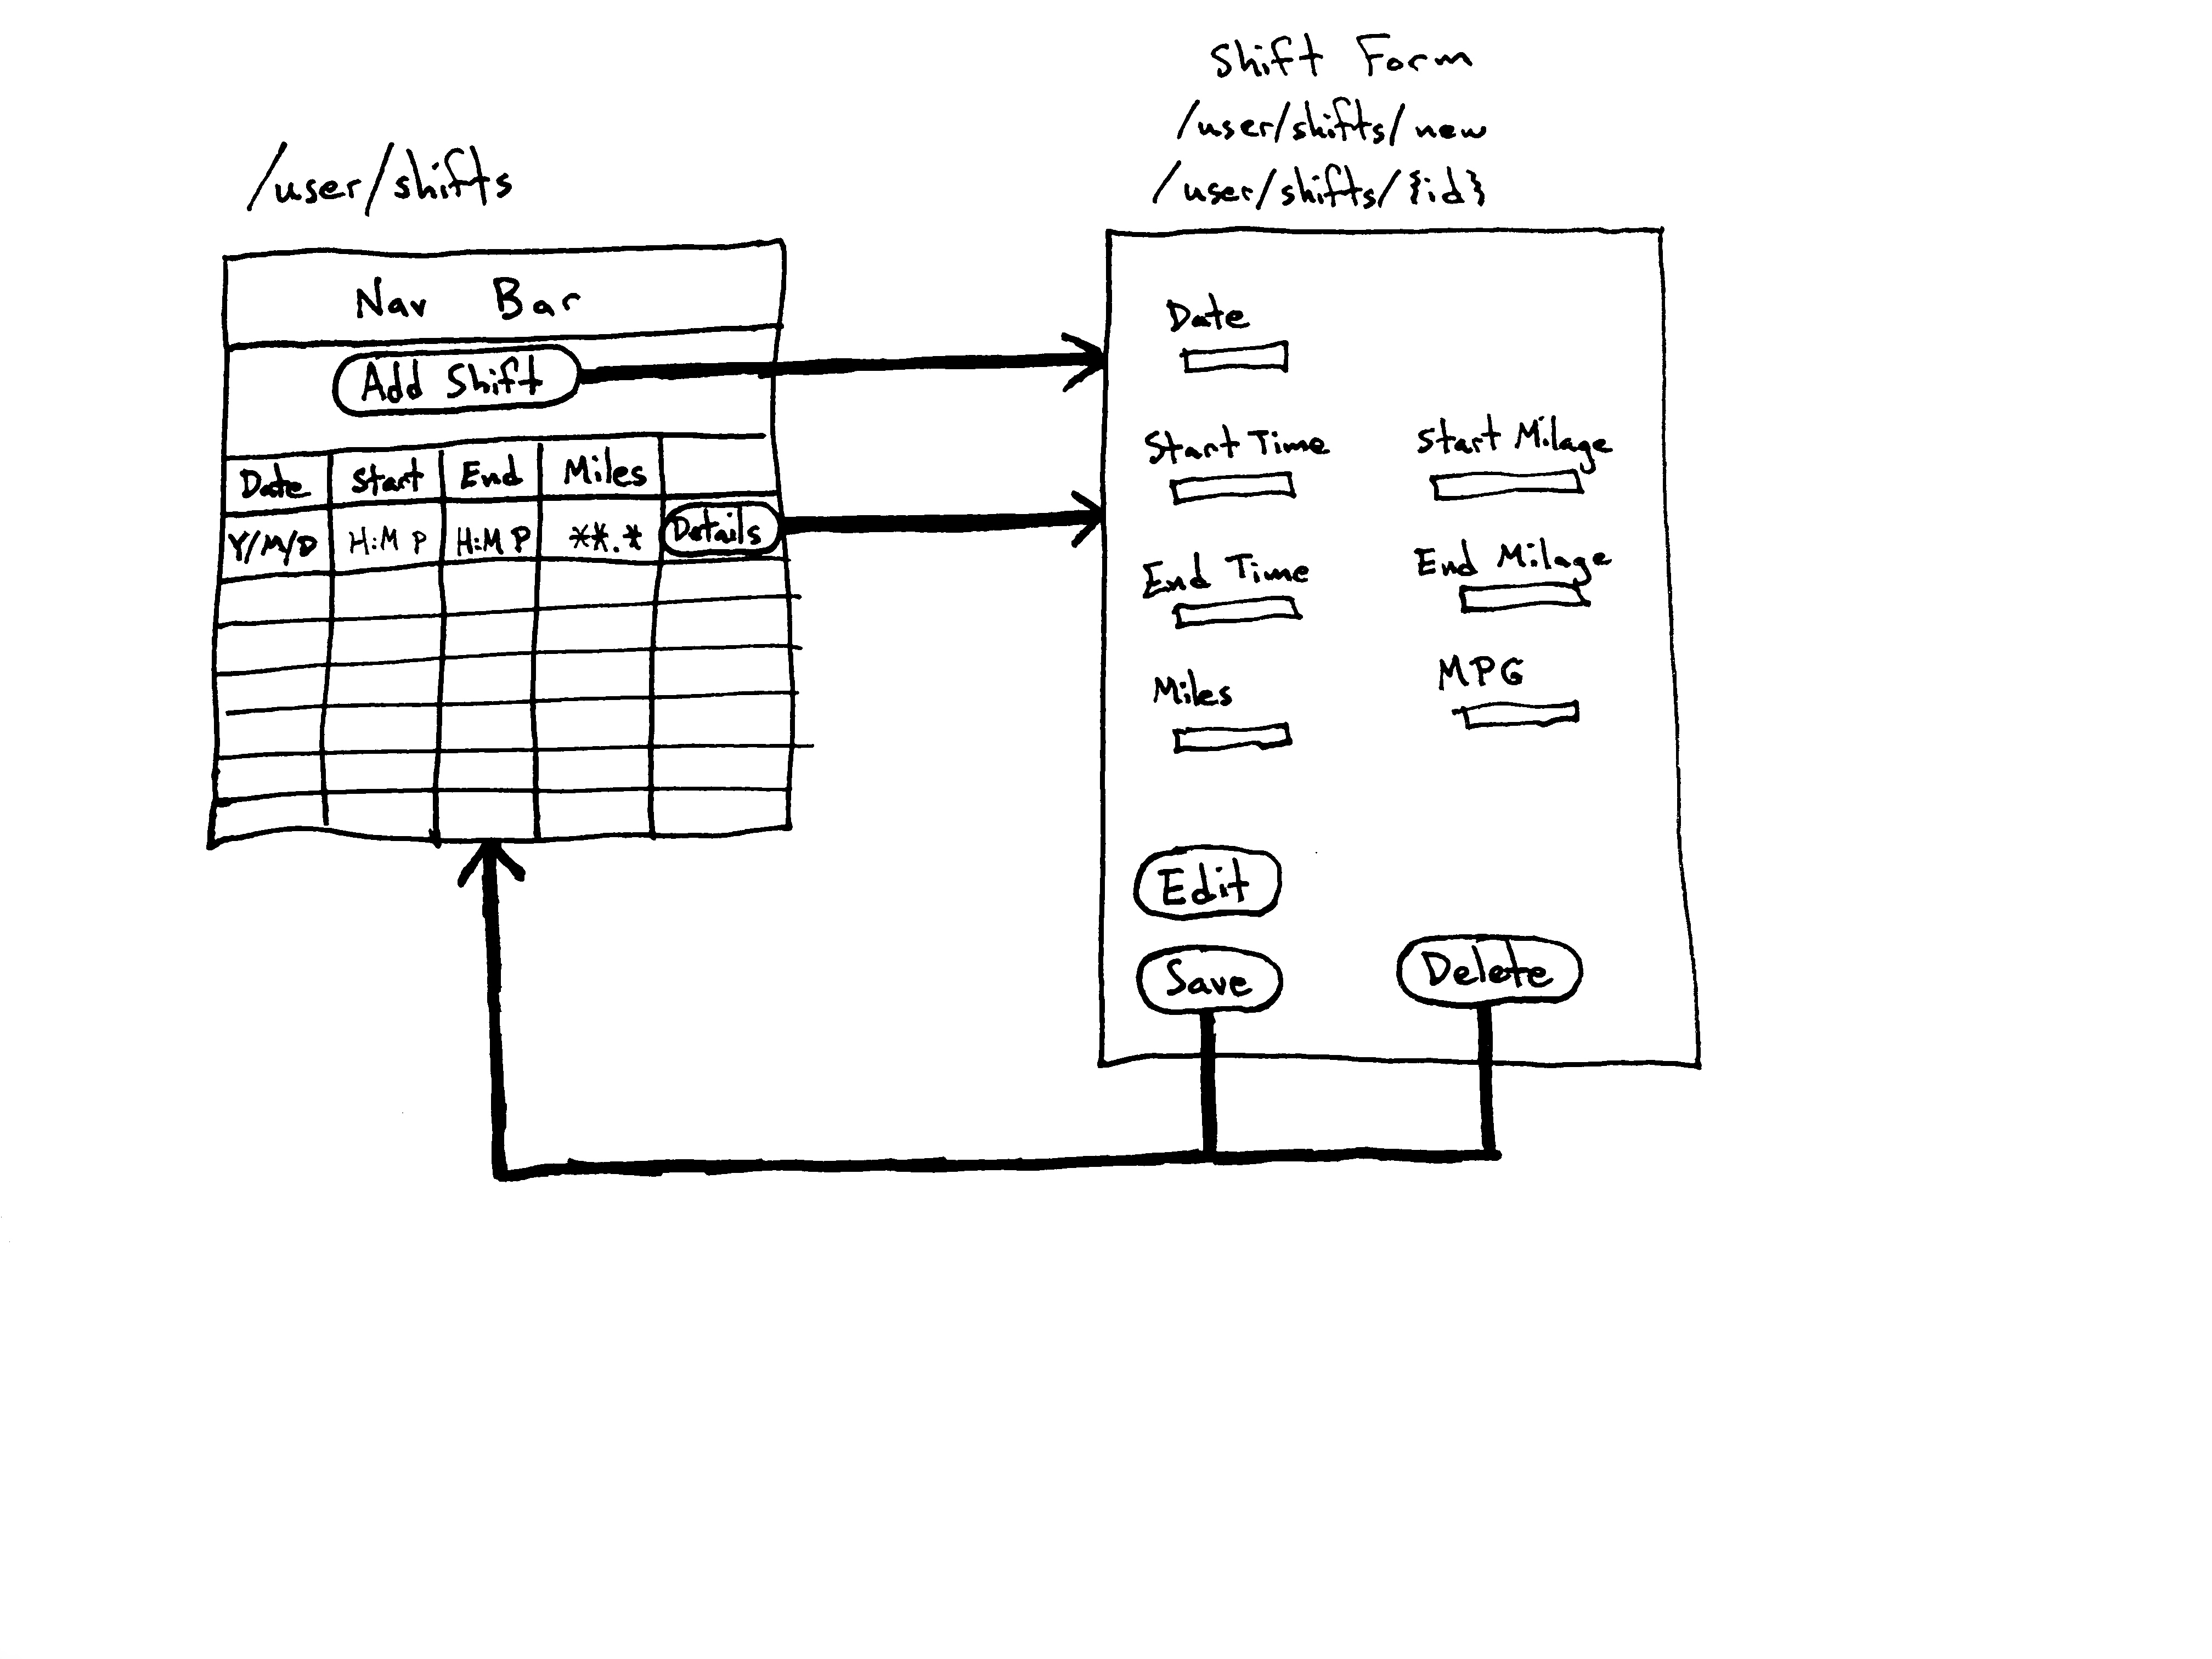 /user/shifts
Nav Bar
Add Shift
Date Start End Miles
Y/M/D H:M P H:M P **.* Details
Shift Form
/user/shifts/new
/user/shifts/{id}
Date
Start Time Start Milage
End Time End Milage
Miles MPG
Edit
Save Delete